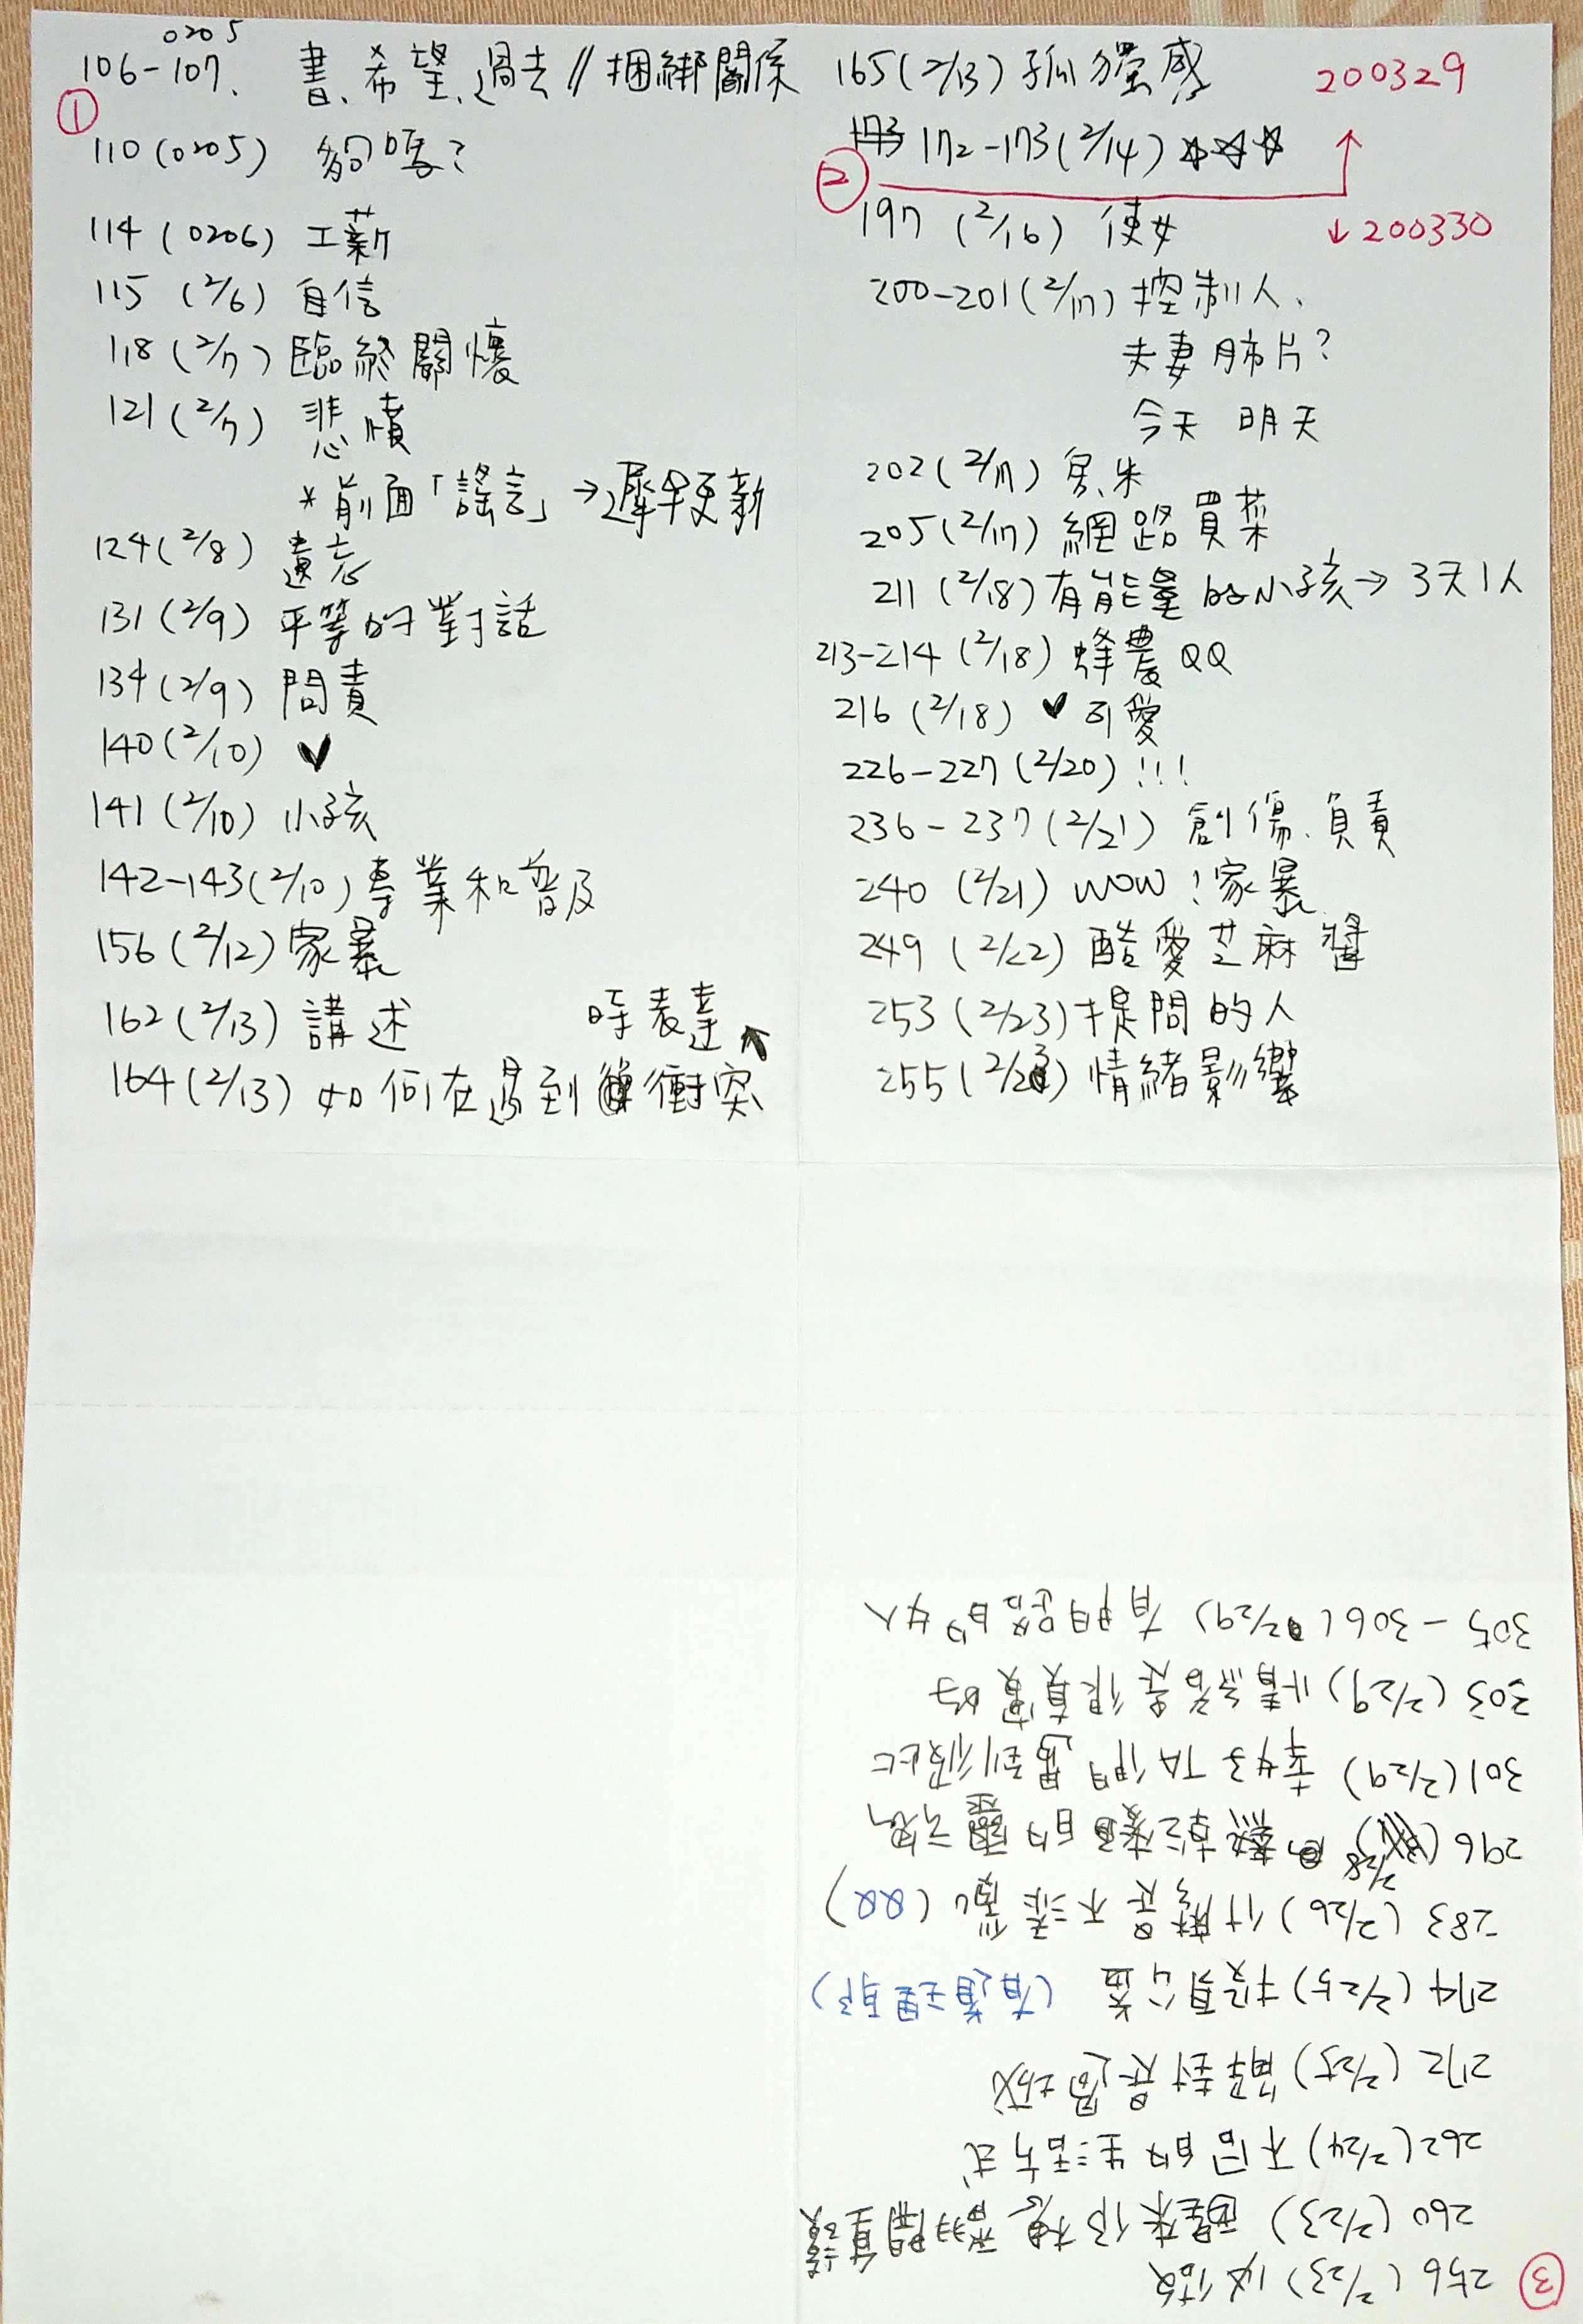 0205
106-107、書、希望、過去//捆綁關係
①
110(0205) 夠嗎?
114(0206) 工薪
115(2/6) 自信
118(2/7) 臨終關懷
121(2/7) 悲憤
*前面「謠言」→遲早更新
124(2/8) 遺忘
131(2/9) 平等的對話
134(2/9) 問責
140(2/10) ♥
141(2/10) 小孩
142-143(2/10) 專業和普及
156(2/12) 家暴
162(2/13) 講述
時表達
164(2/13) 如何在遇到衝突
165(2/13) 孤獨感
200329
172-173(2/14) ☆☆☆
②
197(2/16) 使女
↓200330
200-201(2/17) 控制人、
夫妻肺片?
今天 明天
202(2/17) 魚、米
205(2/17) 網路買菜
211(2/18) 有能量的小孩→3天1人
213-214(2/18) 蜂農QQ
216(2/18) ♥可愛
226-227(2/20) !!!
236-237(2/21) 創傷、負責
240(2/21) WOW!家暴
249(2/22) 酷愛芝麻醬
253(2/23) 提問的人
255(2/23) 情緒影響
③
256(2/23)
260(2/23) 醒來
262(2/24) 不同的生活方式
272(2/25) 解封是
274(2/25) 投身公益 (有道理耶)
283(2/26) 什麼是不添亂 (QQ)
296(2/28) 熱乾麵的
301(2/29) 幸好TA們遇到彼此
303(2/29) 情緒是很真實的
305-306(2/29) 有門路的女人